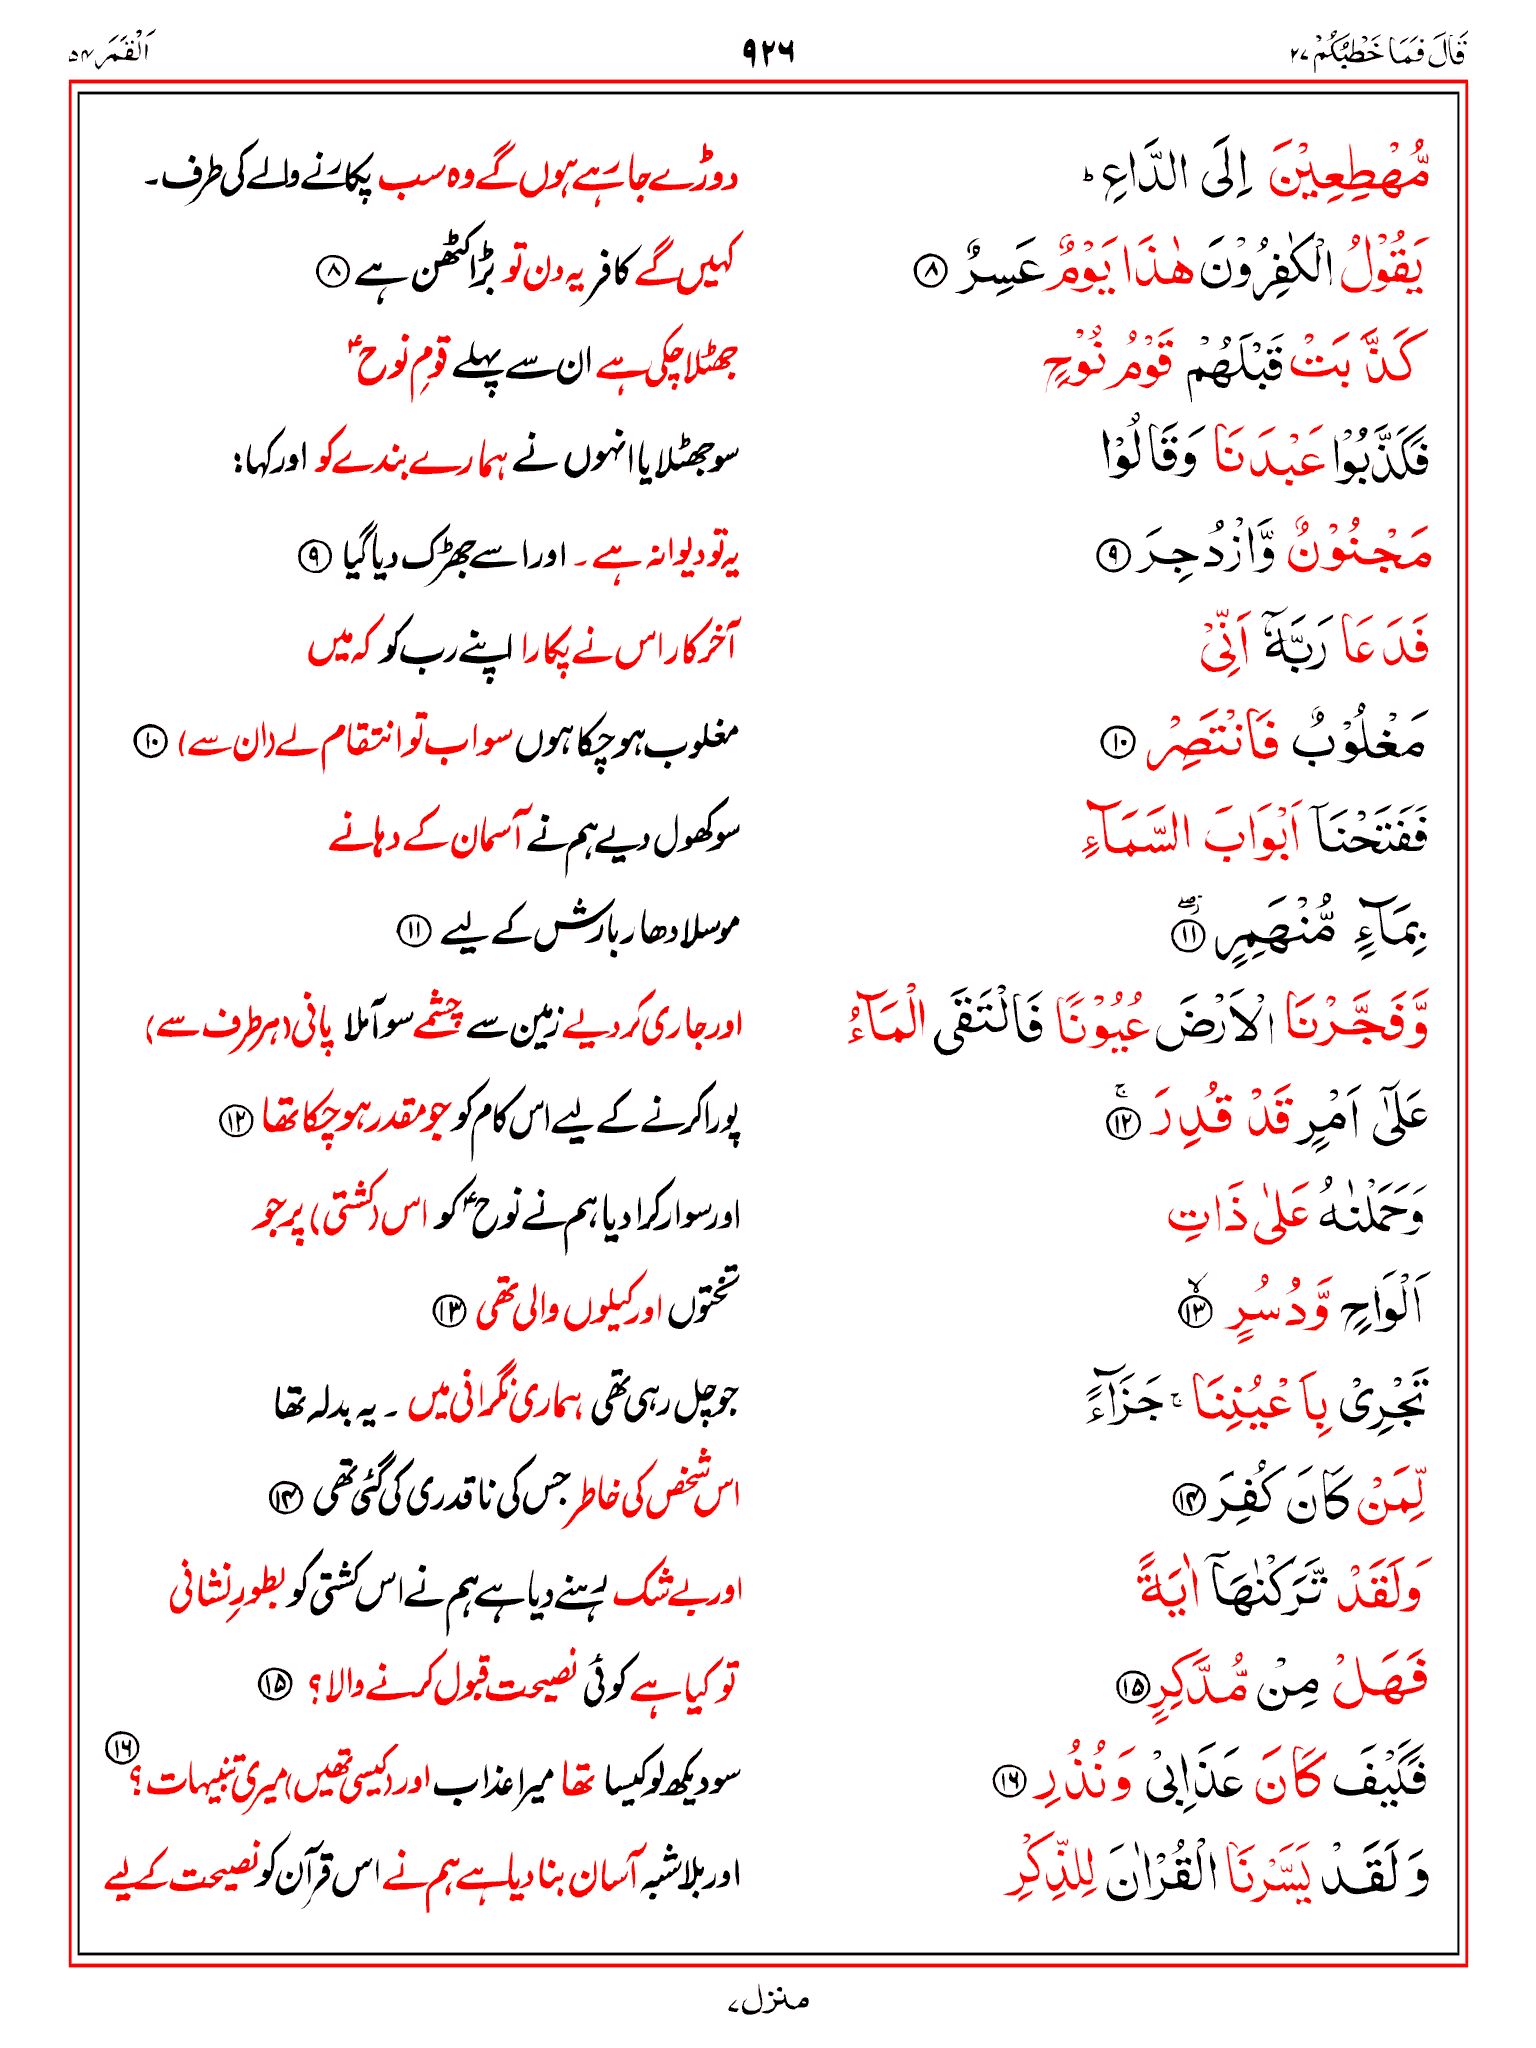 قَالَ فَمَا خَطْبُكُمْ ۲۷
۹۲۶
اَلْقَمَر ۵۴
مُّهْطِعِيْنَ اِلَى الدَّاعِ ؕ
دوڑے جا رہے ہوں گے وہ سب پکارنے والے کی طرف۔
يَقُوْلُ الْكٰفِرُوْنَ هٰذَا يَوْمٌ عَسِرٌ ۸
کہیں گے کافر یہ دن تو بڑا کٹھن ہے ۸
كَذَّبَتْ قَبْلَهُمْ قَوْمُ نُوْحٍ
جھٹلا چکی ہے ان سے پہلے قومِ نوحؑ
فَكَذَّبُوْا عَبْدَنَا وَقَالُوْا
سو جھٹلایا انہوں نے ہمارے بندے کو اور کہا:
مَجْنُوْنٌ وَّازْدُجِرَ ۹
یہ تو دیوانہ ہے۔ اور اسے جھڑک دیا گیا ۹
فَدَعَا رَبَّهٗٓ اَنِّىْ
آخر کار اس نے پکارا اپنے رب کو کہ میں
مَغْلُوْبٌ فَانْتَصِرْ ۱۰
مغلوب ہو چکا ہوں سو اب تو انتقام لے (ان سے) ۱۰
فَفَتَحْنَآ اَبْوَابَ السَّمَآءِ
سو کھول دیے ہم نے آسمان کے دہانے
بِمَآءٍ مُّنْهَمِرٍ ۱۱ۖ
موسلا دھار بارش کے لیے ۱۱
وَّفَجَّرْنَا الْاَرْضَ عُيُوْنًا فَالْتَقَى الْمَآءُ
اور جاری کر دیے زمین سے چشمے سو آ ملا پانی (ہر طرف سے)
عَلٰٓى اَمْرٍ قَدْ قُدِرَ ۱۲ۚ
پورا کرنے کے لیے اس کام کو جو مقدر ہو چکا تھا ۱۲
وَحَمَلْنٰهُ عَلٰى ذَاتِ
اور سوار کرا دیا ہم نے نوحؑ کو اس (کشتی) پر جو
اَلْوَاحٍ وَّدُسُرٍ ۱۳ۙ
تختوں اور کیلوں والی تھی ۱۳
تَجْرِىْ بِاَعْيُنِنَا ۚ جَزَآءً
جو چل رہی تھی ہماری نگرانی میں۔ یہ بدلہ تھا
لِّمَنْ كَانَ كُفِرَ ۱۴
اس شخص کی خاطر جس کی ناقدری کی گئی تھی ۱۴
وَلَقَدْ تَّرَكْنٰهَآ اٰيَةً
اور بے شک رہنے دیا ہے ہم نے اس کشتی کو بطورِ نشانی
فَهَلْ مِنْ مُّدَّكِرٍ ۱۵
تو کیا ہے کوئی نصیحت قبول کرنے والا؟ ۱۵
فَكَيْفَ كَانَ عَذَابِىْ وَنُذُرِ ۱۶
سو دیکھ لو کیسا تھا میرا عذاب اور (کیسی تھیں) میری تنبیہات؟ ۱۶
وَلَقَدْ يَسَّرْنَا الْقُرْاٰنَ لِلذِّكْرِ
اور بلاشبہ آسان بنا دیا ہے ہم نے اس قرآن کو نصیحت کے لیے
منزل ۷